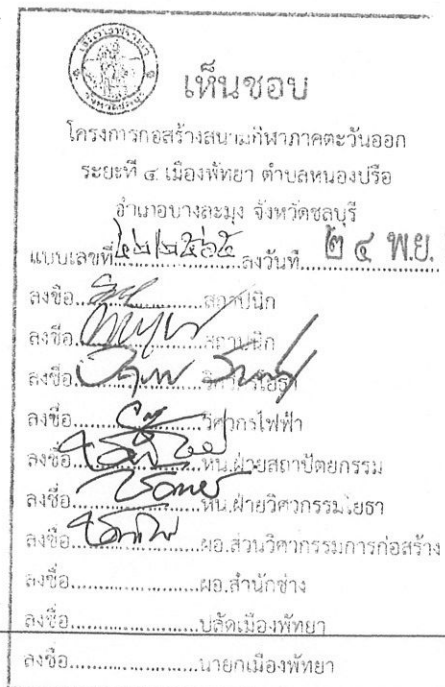 เห็นชอบ
โครงการก่อสร้างสนามกีฬาภาคตะวันออก
ระยะที่ ๔ เมืองพัทยา ตำบลหนองปรือ
อำเภอบางละมุง จังหวัดชลบุรี
แบบเลขที่ ลงวันที่ ๒๔ พ.ย.
ลงชื่อ....................สถาปนิก
ลงชื่อ....................สถาปนิก
ลงชื่อ....................วิศวกรโยธา
ลงชื่อ....................วิศวกรไฟฟ้า
ลงชื่อ....................หน.ฝ่ายสถาปัตยกรรม
ลงชื่อ....................หน.ฝ่ายวิศวกรรมโยธา
ลงชื่อ....................ผอ.ส่วนวิศวกรรมการก่อสร้าง
ลงชื่อ....................ผอ.สำนักช่าง
ลงชื่อ....................ปลัดเมืองพัทยา
ลงชื่อ....................นายกเมืองพัทยา